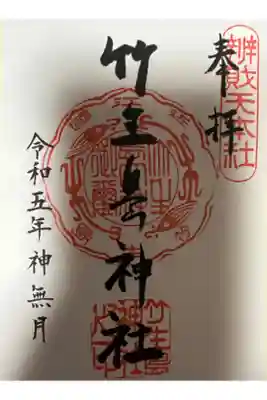 辨財天本社
奉拝
竹生島神社
令和五年 神無月